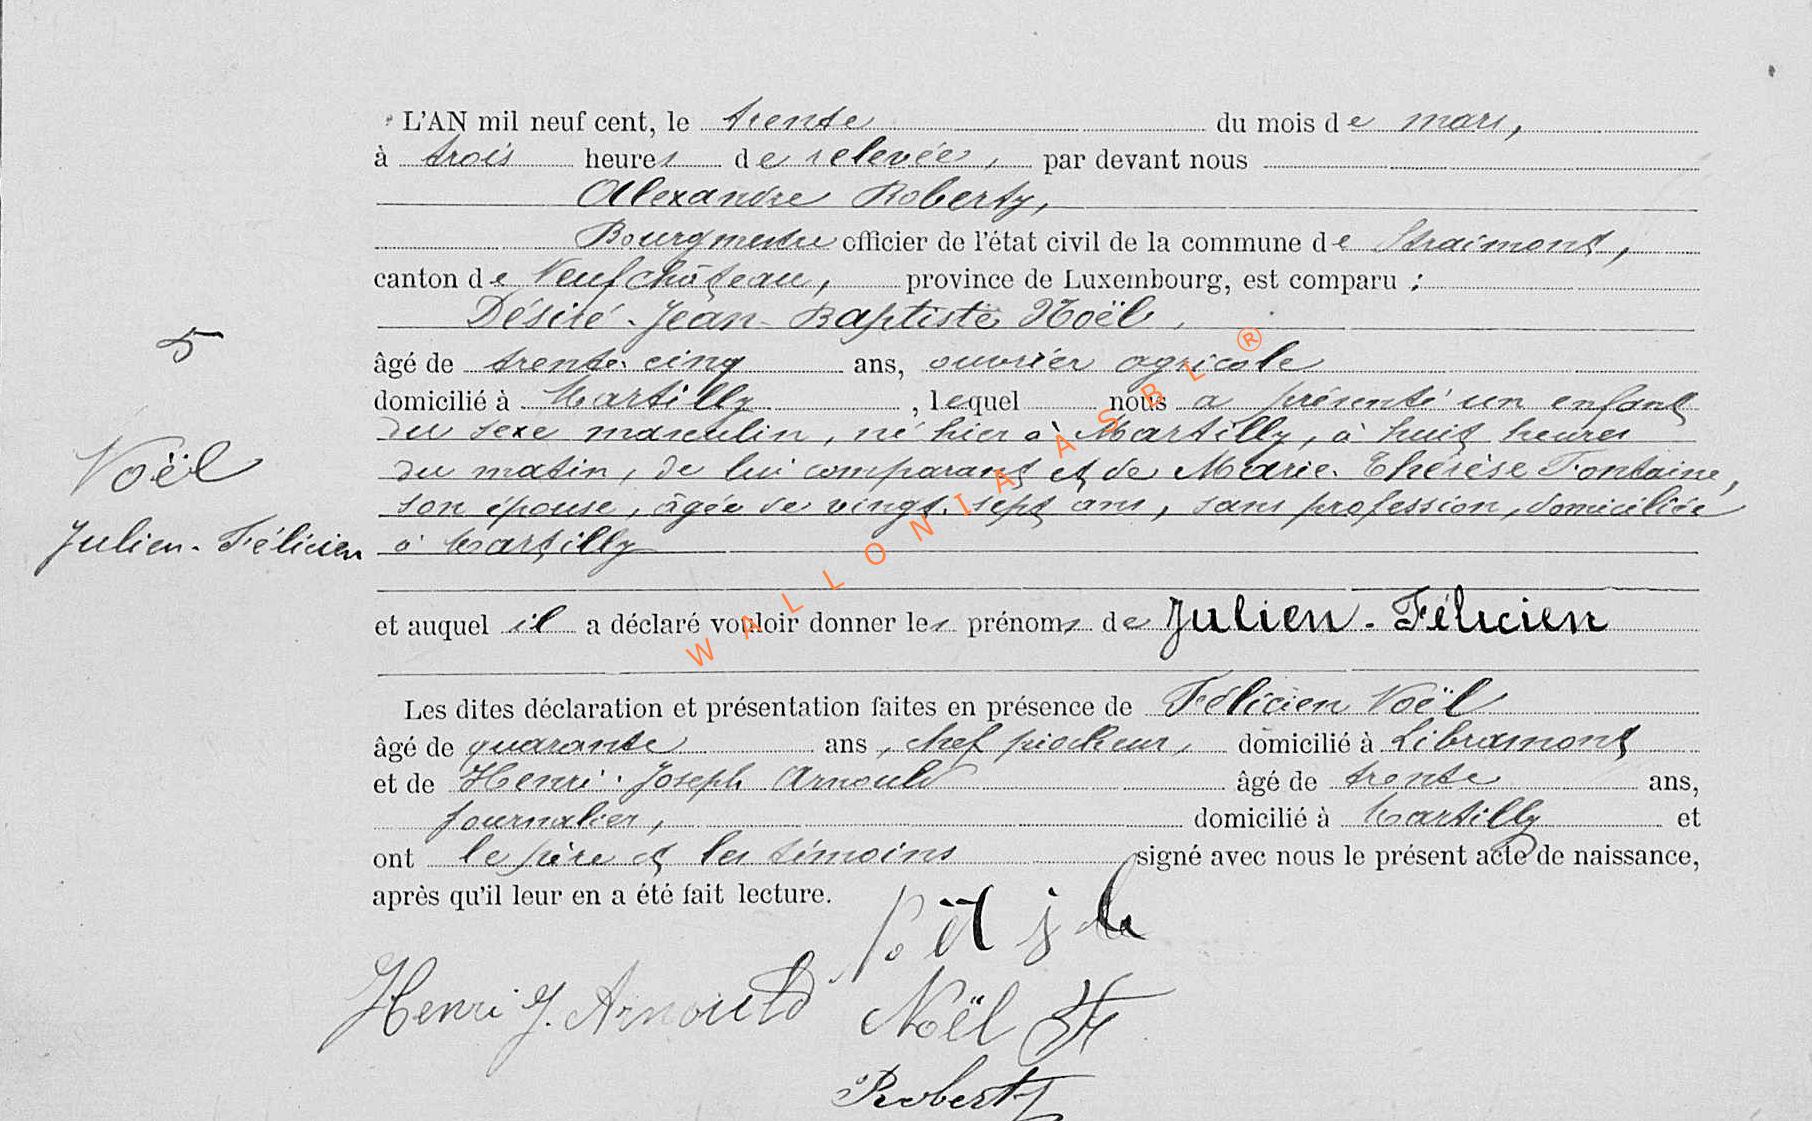 L'AN mil neuf cent, le trente du mois de mars,
à trois heures de relevée, par devant nous
Alexandre Roberty,
Bourgmestre officier de l'état civil de la commune de Straimont,
canton de Neufchâteau, province de Luxembourg, est comparu :
Désiré-Jean-Baptiste Noël,
5
âgé de trente-cinq ans, ouvrier agricole
domicilié à Martilly, lequel nous a présenté un enfant
du sexe masculin, né hier à Martilly, à huit heures
Noël
du matin, de lui comparant et de Marie-Thérèse Fontaine,
son épouse, âgée de vingt-sept ans, sans profession, domiciliée
Julien-Félicien
à Martilly
et auquel il a déclaré vouloir donner les prénoms de Julien-Félicien
Les dites déclaration et présentation faites en présence de Félicien Noël
âgé de quarante ans, chef piocheur, domicilié à Libramont
et de Henri-Joseph Arnould âgé de trente ans,
journalier, domicilié à Martilly et
ont le père et les témoins signé avec nous le présent acte de naissance,
après qu'il leur en a été fait lecture.
Henri J. Arnould Noël
Roberty
WALLONIA ASBL ®